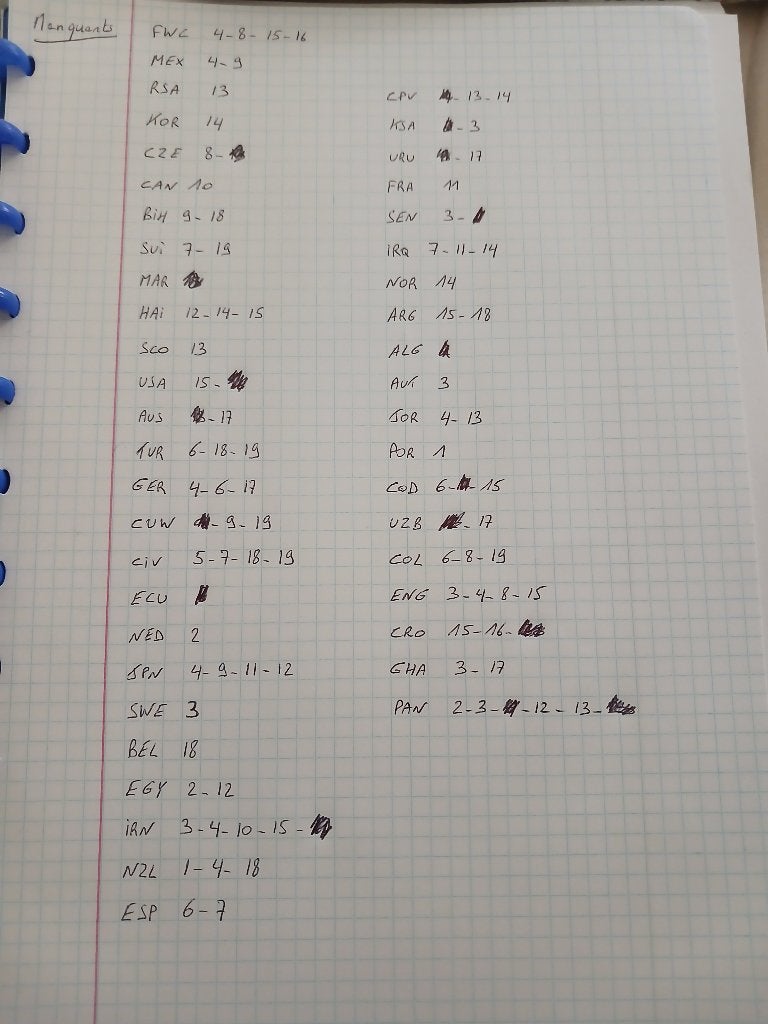 Manquants
FWC 4-8-15-16
MEX 4-9
RSA 13
KOR 14
CZE 8-
CAN 10
BiH 9-18
SUi 7-19
MAR
HAi 12-14-15
SCO 13
USA 15-
AUS -17
TUR 6-18-19
GER 4-6-17
CUW -9-19
CiV 5-7-18-19
ECU
NED 2
JPN 4-9-11-12
SWE 3
BEL 18
EGY 2-12
iRN 3-4-10-15-
NZL 1-4-18
ESP 6-7
CPV -13-14
KSA -3
URU -17
FRA 11
SEN 3-
iRQ 7-11-14
NOR 14
ARG 15-18
ALG
AUT 3
JOR 4-13
POR 1
COD 6- -15
UZB -17
COL 6-8-19
ENG 3-4-8-15
CRO 15-16-
GHA 3-17
PAN 2-3- -12-13-